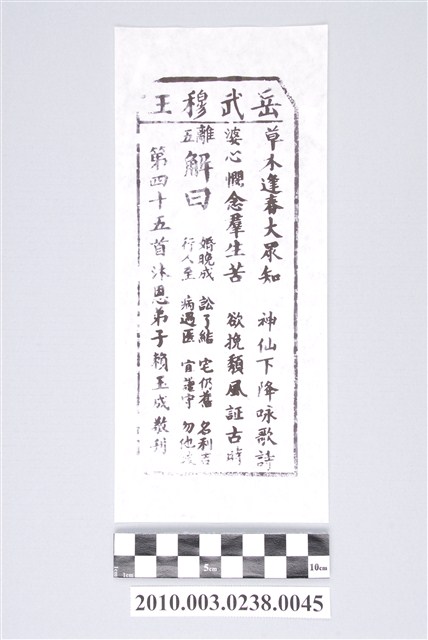 岳武穆王
草木逢春大眾知 神仙下降咏歌詩
婆心憫念羣生苦 欲挽頹風証古時
離五
解曰
婚晚成 訟了結 宅仍舊 名利吉
行人至 病過医 宜谨守 勿他求
第四十五首沐恩弟子賴玉成敬刊
5cm
10cm
2010.003.0238.0045